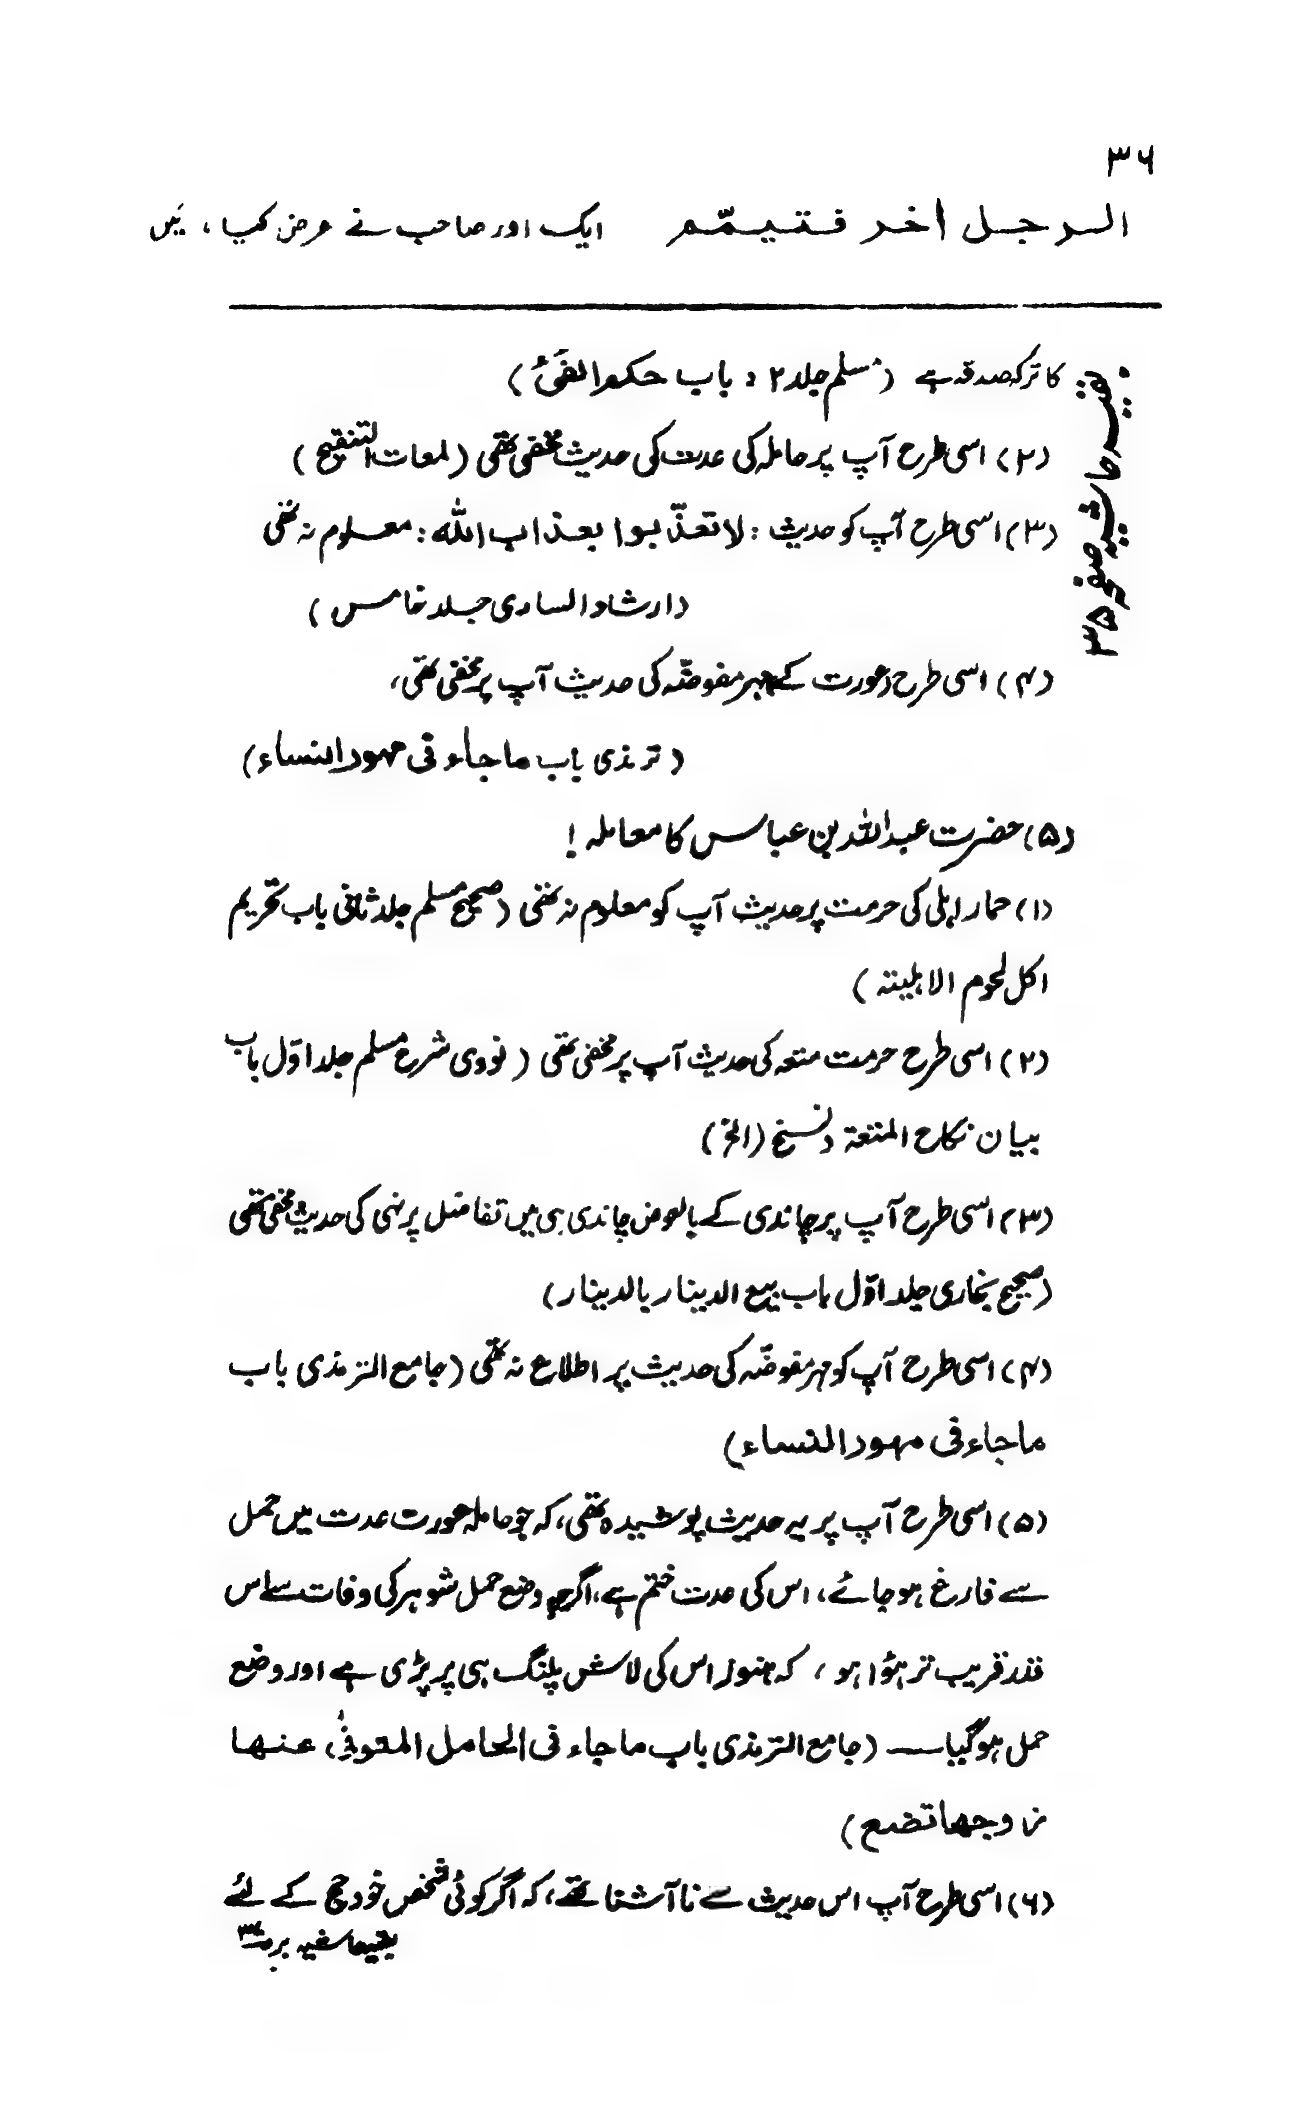 ۳۶
الرجل اٰخر فتیمّم ایک اور صاحب نے عرض کیا، میں
بقیہ حاشیہ صفحہ ۳۵
کا ترکہ صدقہ ہے (مسلم جلد ۲ : باب حکم الفیٔ)
(۲) اسی طرح آپ پر حاملہ کی عدت کی حدیث مخفی تھی (لمعات التنقیح)
(۳) اسی طرح آپ کو حدیث : لا تعذّبوا بعذاب اللہ : معلوم نہ تھی
(ارشاد الساری جلد خامس)
(۴) اسی طرح عورت کے مہر مفوضّہ کی حدیث آپ پر مخفی تھی،
(ترمذی باب ماجاء فی مہور النساء)
(۵) حضرت عبداللہ بن عباس کا معاملہ !
(۱) حمار اہلی کی حرمت پر حدیث آپ کو معلوم نہ تھی (صحیح مسلم جلد ثانی باب تحریم
اکل لحوم الاہلیتہ)
(۲) اسی طرح حرمت متعہ کی حدیث آپ پر مخفی تھی (نووی شرح مسلم جلد اوّل باب
بیان نکاح المتعة ونسخ (الخ)
(۳) اسی طرح آپ پر چاندی کے بالعوض چاندی ہی میں تفاضل پر نہی کی حدیث مخفی تھی
(صحیح بخاری جلد اوّل باب بیع الدینار بالدینار)
(۴) اسی طرح آپ کو مہر مفوضّہ کی حدیث پر اطلاع نہ تھی (جامع الترمذی باب
ماجاء فی مہور النساء)
(۵) اسی طرح آپ پر یہ حدیث پوشیدہ تھی، کہ جو حاملہ عورت عدت میں حمل
سے فارغ ہو جائے، اس کی عدت ختم ہے، اگرچہ وضع حمل شوہر کی وفات سے اس
قدر قریب تر ہؤا ہو، کہ ہنوز اس کی لاش پلنگ ہی پر پڑی ہے اور وضع
حمل ہو گیا — (جامع الترمذی باب ماجاء فی الحامل المتوفیٰ عنہا
زوجھا تضع)
(۶) اسی طرح آپ اس حدیث سے ناآشنا تھے، کہ اگر کوئی شخص خود حج کے لئے
بقیہ حاشیہ بر